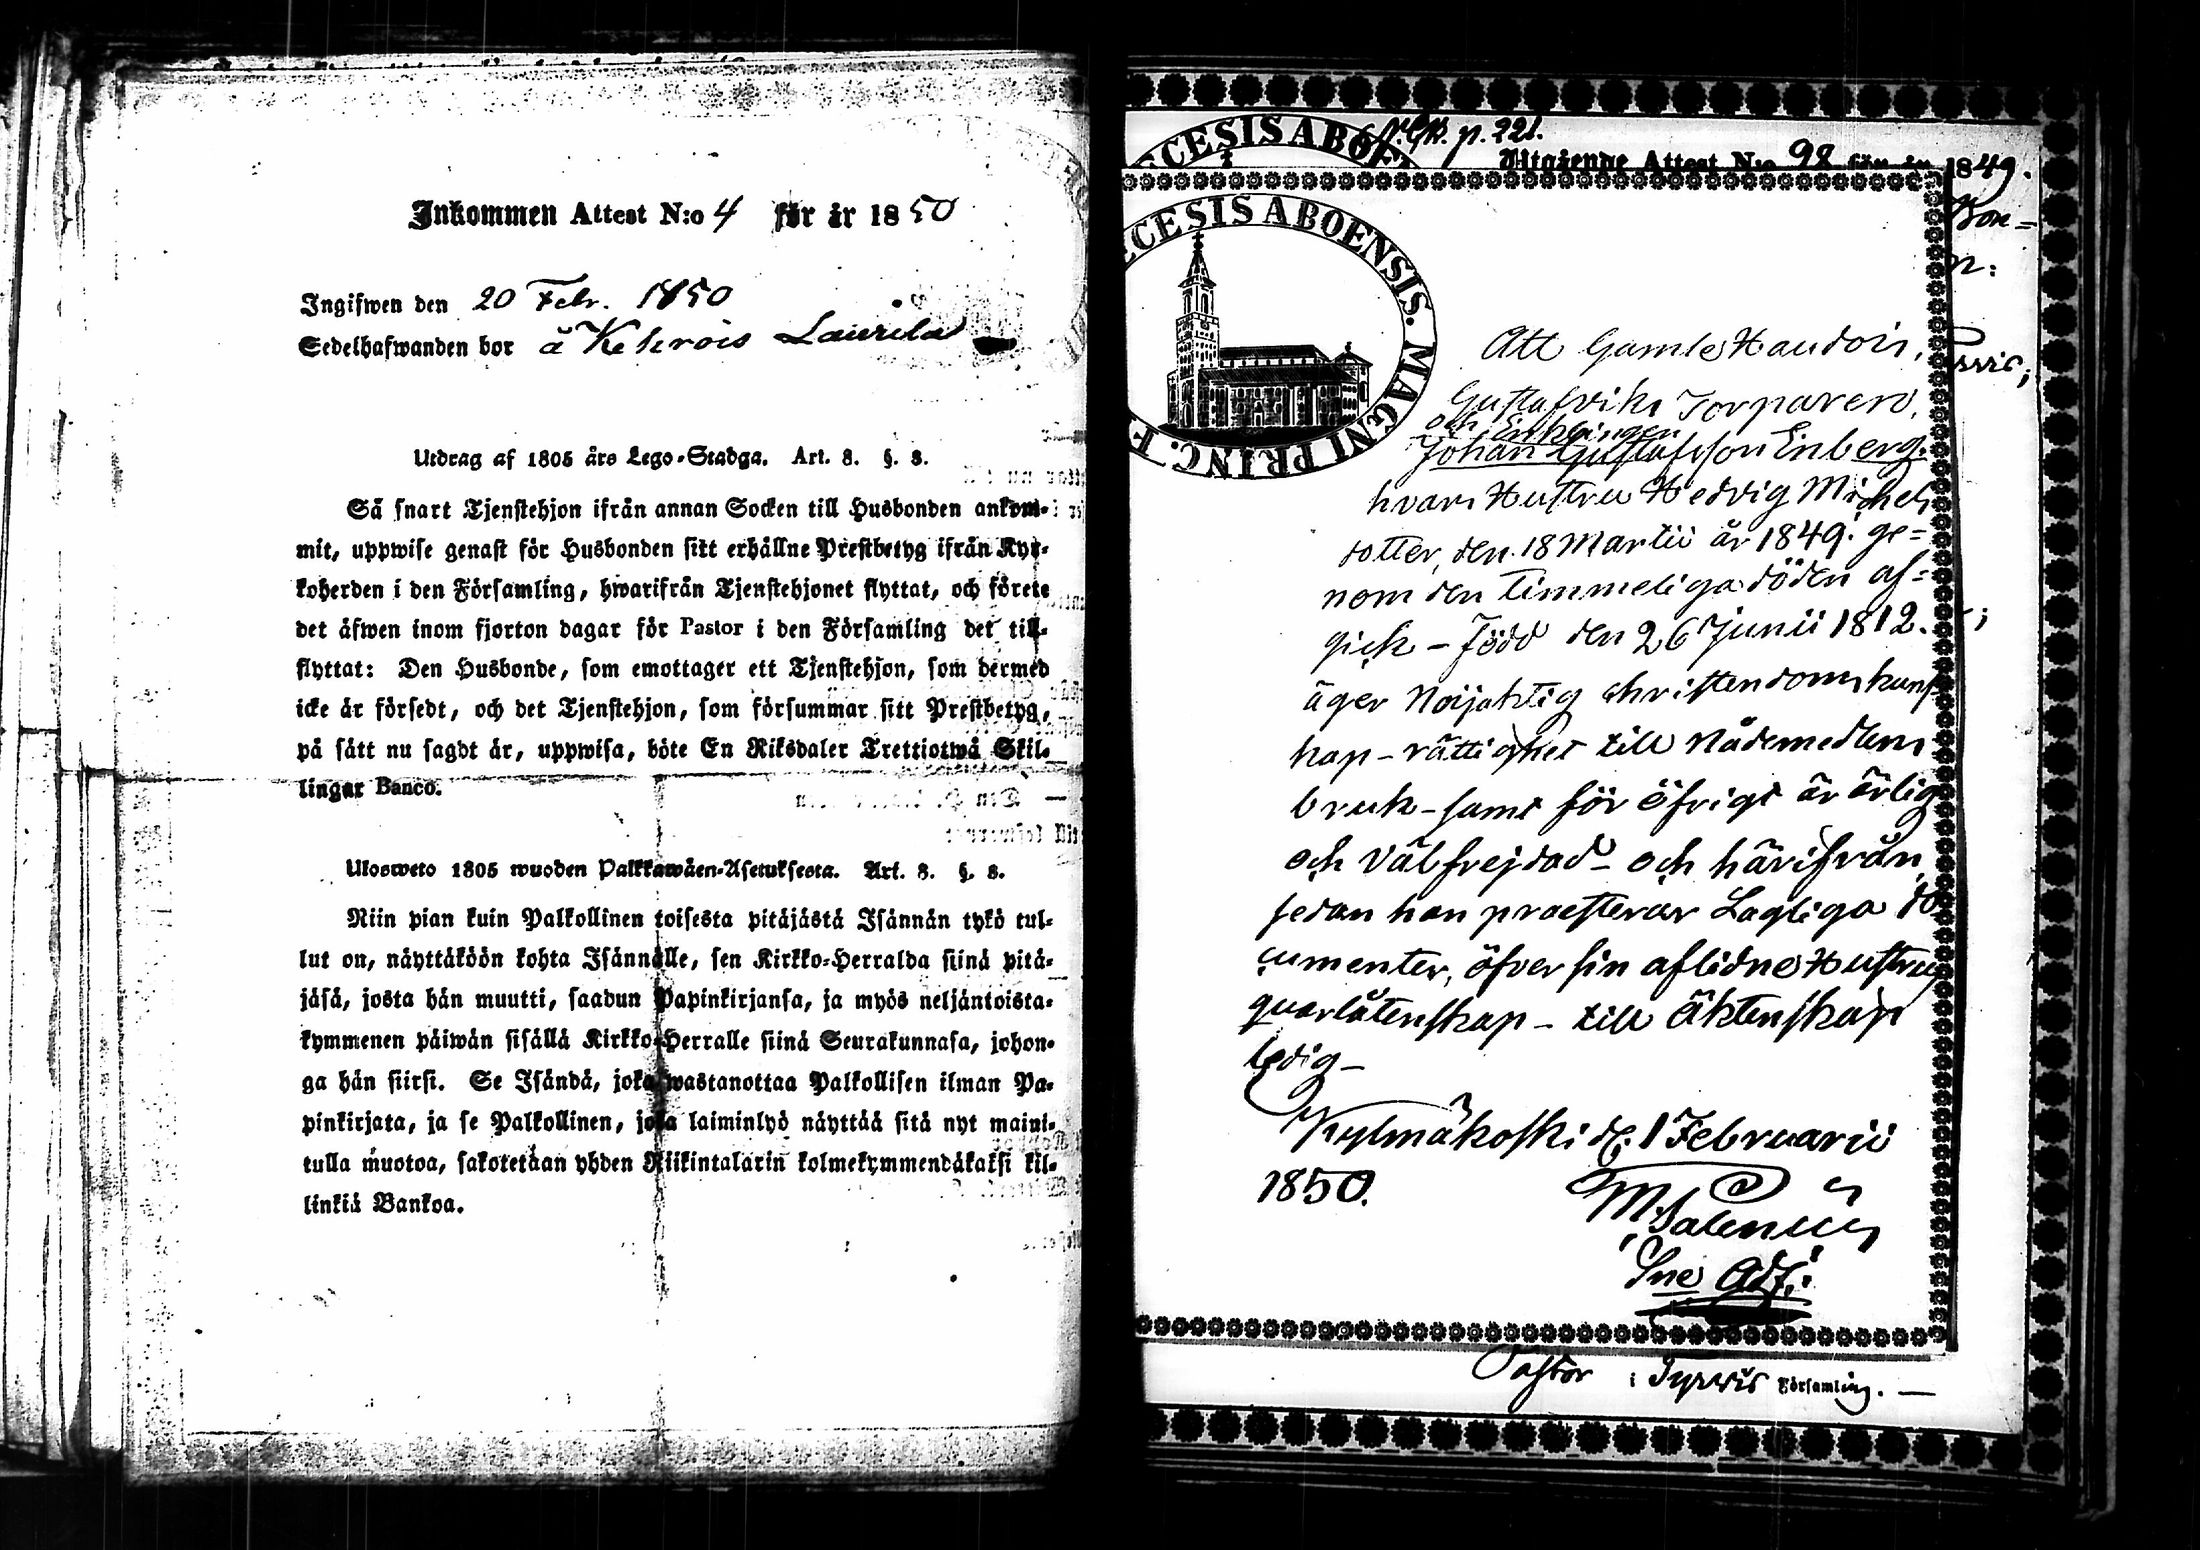 Inkommen Attest N:o 4 för år 1850
Ingifwen den 20 Febr. 1850
Sedelhafwanden bor å Kekrois Laurila
Utdrag af 1805 års Lego-Stadga. Art. 8. §. 8.
Så snart Tjenstehjon ifrån annan Socken till Husbonden ankom-
mit, uppwise genast för Husbonden sitt erhållne Prestbetyg ifrån Kyr-
koherden i den Församling, hwarifrån Tjenstehjonet flyttat, och förete
det äfwen inom fjorton dagar för Pastor i den Församling det till-
flyttat: Den Husbonde, som emottager ett Tjenstehjon, som dermed
icke är försedt, och det Tjenstehjon, som försummar sitt Prestbetyg,
på sätt nu sagdt är, uppwisa, böte En Riksdaler Trettiotwå Skil-
lingar Banco.
Ulosweto 1805 wuoden Palkkawäen-Asetuksesta. Art. 8. §. 8.
Niin pian kuin Palkollinen toisesta pitäjästä Isännän tykö tul-
lut on, näyttäköön kohta Isännälle, sen Kirkko-Herralda siinä pitä-
jäsä, josta hän muutti, saadun Papinkirjansa, ja myös neljäntoista-
kymmenen päiwän sisällä Kirkko-Herralle siinä Seurakunnasa, johon-
ga hän siirsi. Se Isändä, joka wastanottaa Palkollisen ilman Pa-
pinkirjata, ja se Palkollinen, joka laiminlyö näyttää sitä nyt maini-
tulla muotoa, sakotetaan yhden Riikintalarin kolmekymmendäkaksi kil-
linkiä Bankoa.
p. 221.
Utgående Attest N:o 98 för år 1849.
ECESIS ABOENSIS. MAGNI PRINC. F
Att Gamle Haudois,
Gustafviks Torparen,
och Enklingen
Johan Gustafsson Enberg.
hvars Hustru Hedvig Michels
dotter, den 18 Martii år 1849. ge=
nom den timmeliga döden af=
gick – Född den 26 Junii 1812.
äger Nöijaktig christendoms kuns
kap – rättighet till Nådemedlens
bruk – samt för öfrigt är ärlig
och välfrejdad – och härifrån,
sedan han praesterar Lagliga do
cumenter, öfver sin aflidne Hustrus
quarlåtenskap – till äktenskap
ledig –
Kylmäkoski d. 1 Februarii
1850.
M. Salenius
Sne Adj.
Pastor i Tyrvis Församling. —